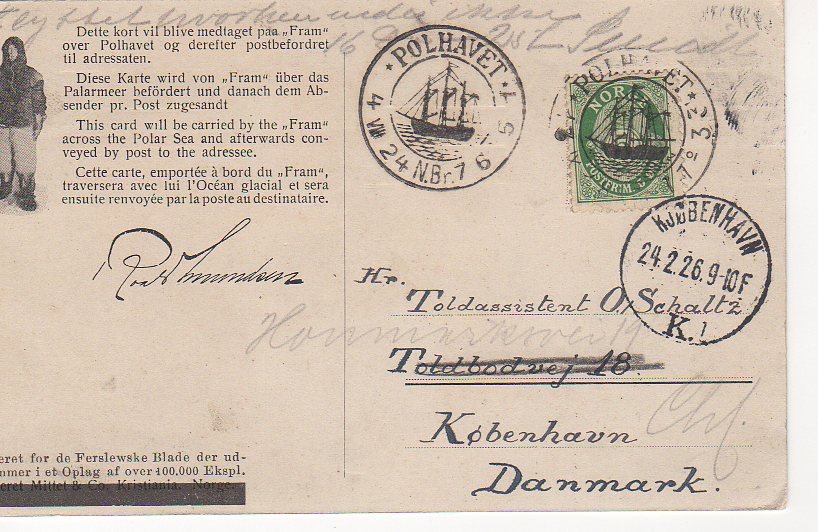 flyttet
Dette kort vil blive medtaget paa „Fram"
over Polhavet og derefter postbefordret
til adressaten.
Diese Karte wird von „Fram" über das
Palarmeer befördert und danach dem Ab-
sender pr. Post zugesandt
This card will be carried by the „Fram"
across the Polar Sea and afterwards con-
veyed by post to the adressee.
Cette carte, emportée à bord du „Fram",
traversera avec lui l'Océan glacial et sera
ensuite renvoyée par la poste au destinataire.
Roald Amundsen
eret for de Ferslewske Blade der ud-
mmer i et Oplag af over 100,000 Ekspl.
eret Mittet & Co. Kristiania. Norge.
*POLHAVET*
4 VIII
24 N.Br. 76 5
POLHAVET
NORGE
POSTFRIM.
KJØBENHAVN
24.2.26.9-10F
K.1
Hr.
Toldassistent O. Schaltz
Toldbodvej 18.
København
Danmark.